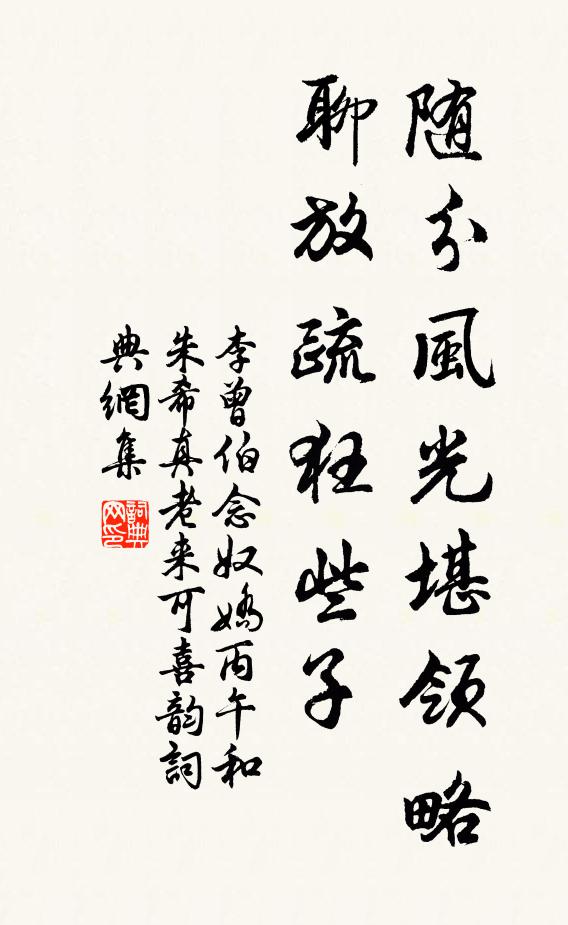 随分風光堪領略
聊放疏狂些子
李曾伯念奴嬌丙午和
朱希真老来可喜韵詞
典網集
詞典网印